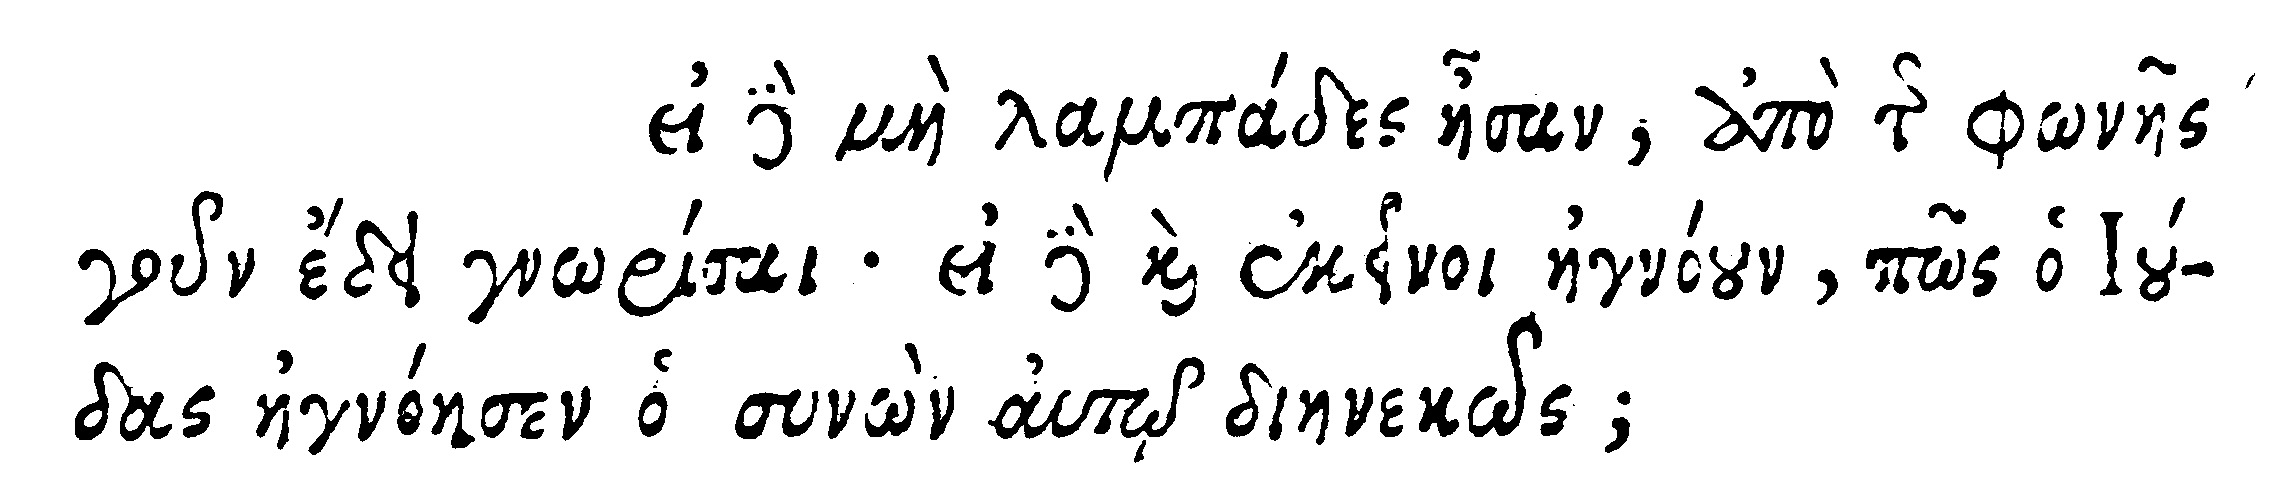 εἰ δὲ μὴ λαμπάδες ἦσαν, ἀπὸ τῆς φωνῆς
γοῦν ἔδει γνωρίσαι· εἰ δὲ καὶ ἐκεῖνοι ἠγνόουν, πῶς ὁ Ἰού-
δας ἠγνόησεν ὁ συνὼν αὐτῷ διηνεκῶς;